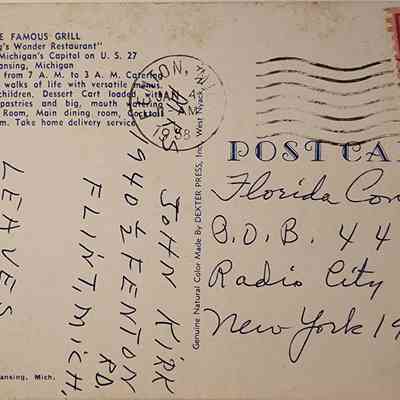 E FAMOUS GRILL
g's Wonder Restaurant"
Michigan's Capitol on U. S. 27
ansing, Michigan
from 7 A. M. to 3 A. M. Catering
walks of life with versatile menus.
children. Dessert Cart loaded with
pastries and big, mouth watering
Room, Main dining room, Cocktail
m. Take home delivery service.
JAN 4
AM
1958
POST CA
Genuine Natural Color Made By DEXTER PRESS, Inc. West Nyack,
JOHN KIRK
940½ FENTON
RD.
FLINT, MICH.
LEAVES
Florida Con
P.O.B. 44
Radio City
New York 19
ansing, Mich.